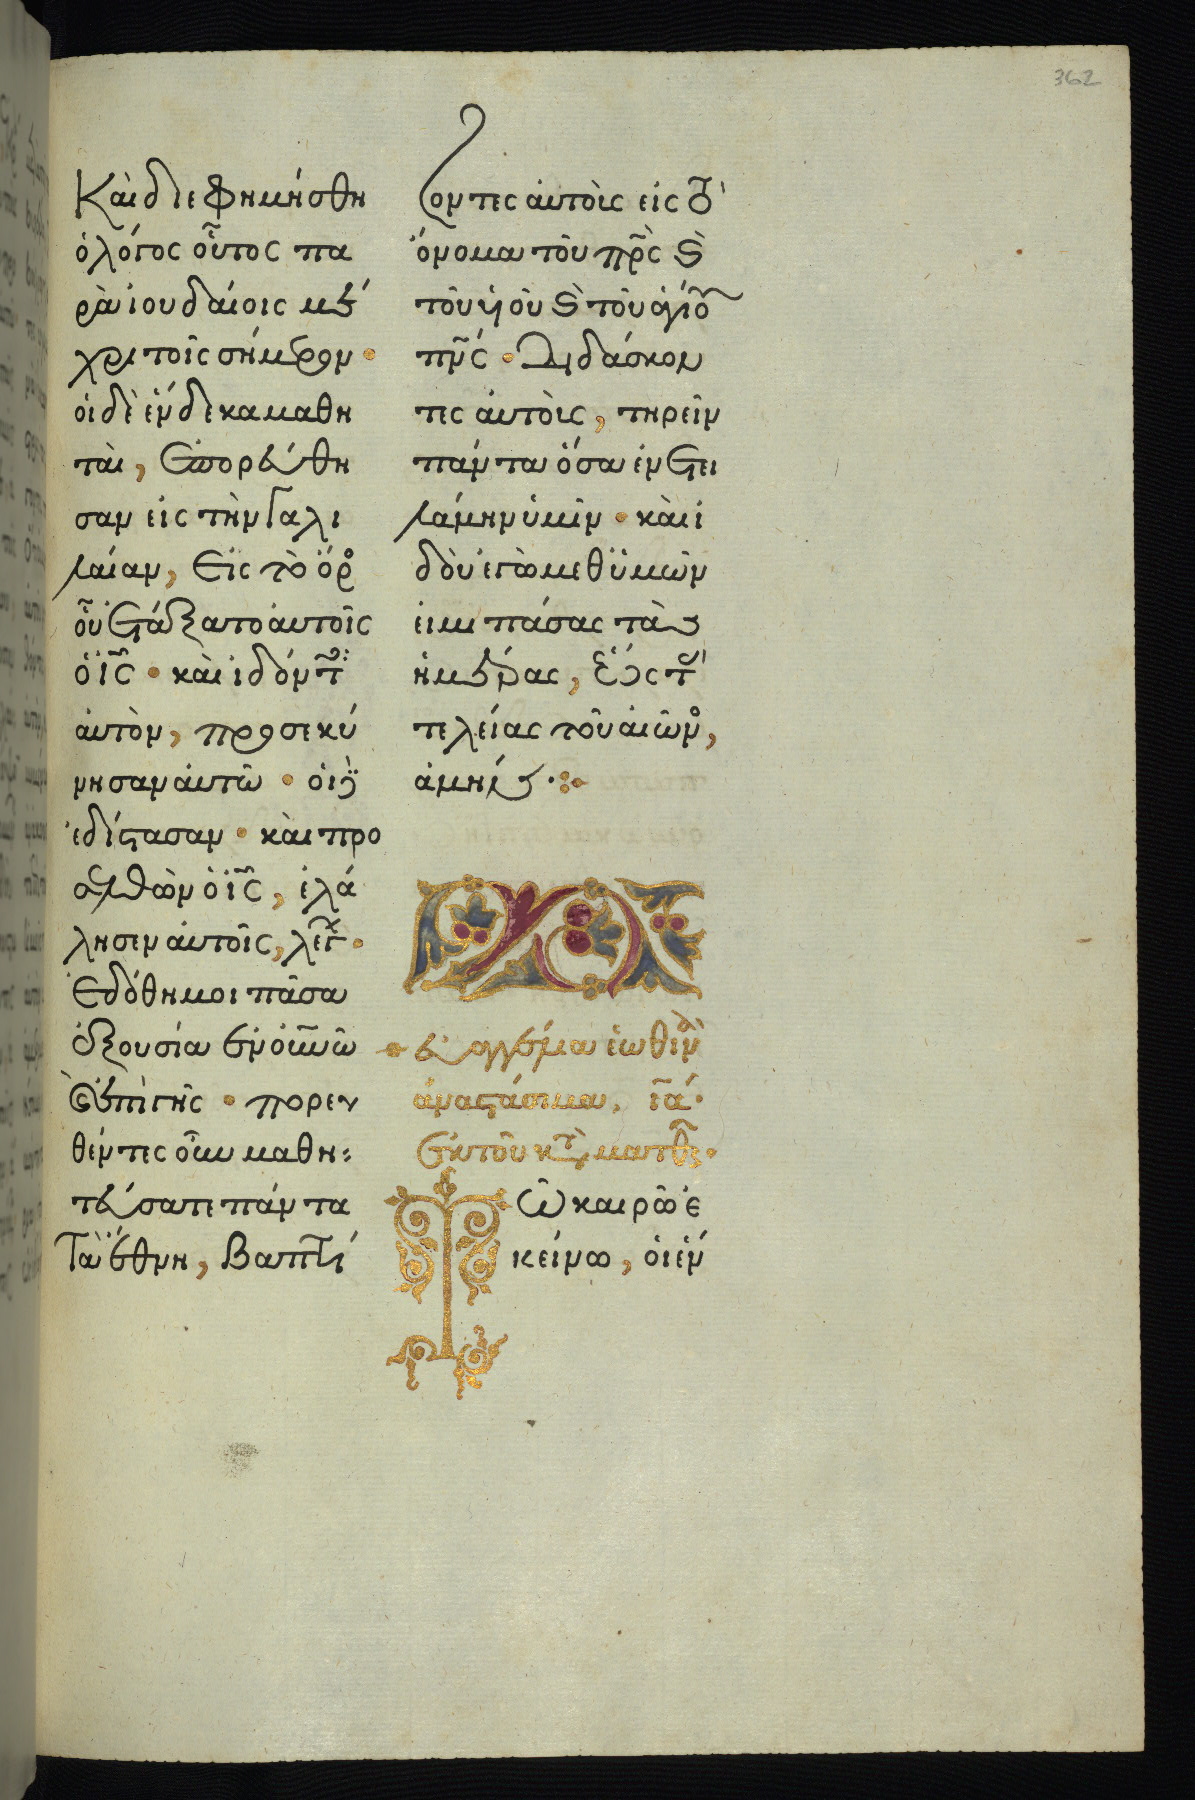 362
Καὶ διεφημήσθη
ὁ λόγος οὗτος πα
ρὰ ἰουδαίοις μέ
χρι τοῖς σήμερον ·
οἱ δὲ ἕνδεκα μαθη
ταὶ, Ἐπορεύθη
σαν εἰς τὴν Γαλι
λαίαν, Εἰς τὸ ὄρος
οὗ ἐτάξατο αὐτοῖς
ὁ ις · καὶ ἰδόντες
αὐτὸν, προσεκύ
νησαν αὐτῶ · οἱ δὲ
ἐδίστασαν · καὶ προ
σελθὼν ὁ ις, ἐλά
λησεν αὐτοῖς, λέγων ·
Ἐδόθη μοι πᾶσα
ἐξουσία ἐν οὐνῶ
καὶ ἐπὶ γῆς · πορευ
θέντες οὖν μαθη
τεύσατε πάντα
Τὰ ἔθνη, Βαπτί
ζοντες αὐτοὺς εἰς τὸ
ὄνομα τοῦ πρς καὶ
τοῦ υἱοῦ καὶ τοῦ ἁγίου
πνς · Διδάσκον
τες αὐτοὺς, τηρεῖν
πάντα ὅσα ἐνετει
λάμην ὑμῖν · καὶ ἰ
δοὺ ἐγὼ μεθ ὑμῶν
εἰμι πάσας τὰς
ἡμέρας, ἕως τῆς
τελείας τοῦ αἰῶνος,
ἀμήν.
εὐαγγέλια ἑωθινὰ
ἀναστάσιμα. ια.
Ἐκ τοῦ κτ ματθ.
Τῶ καιρῶ ἐ
κείνω, οἱ ἕν